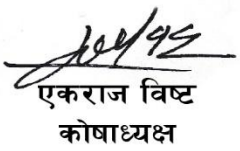 एकराज विष्ट
कोषाध्यक्ष